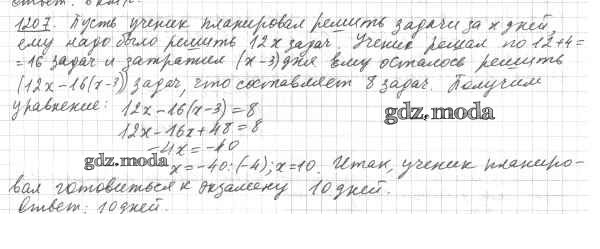 1207. Пусть ученик планировал решить задачи за x дней,
ему надо было решить 12x задач. Ученик решал по 12+4=
=16 задач и затратил (x-3) дня. Ему осталось решить
(12x-16(x-3)) задач, что составляет 8 задач. Получим
уравнение: 12x-16(x-3)=8
gdz.moda
12x-16x+48=8
-4x=-40
gdz.moda
x=-40:(-4); x=10. Итак, ученик планиро-
вал готовиться к экзамену 10 дней.
Ответ: 10 дней.